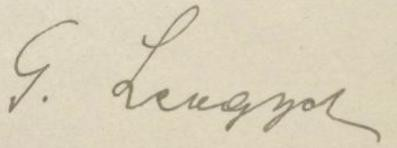 G. Lengyel